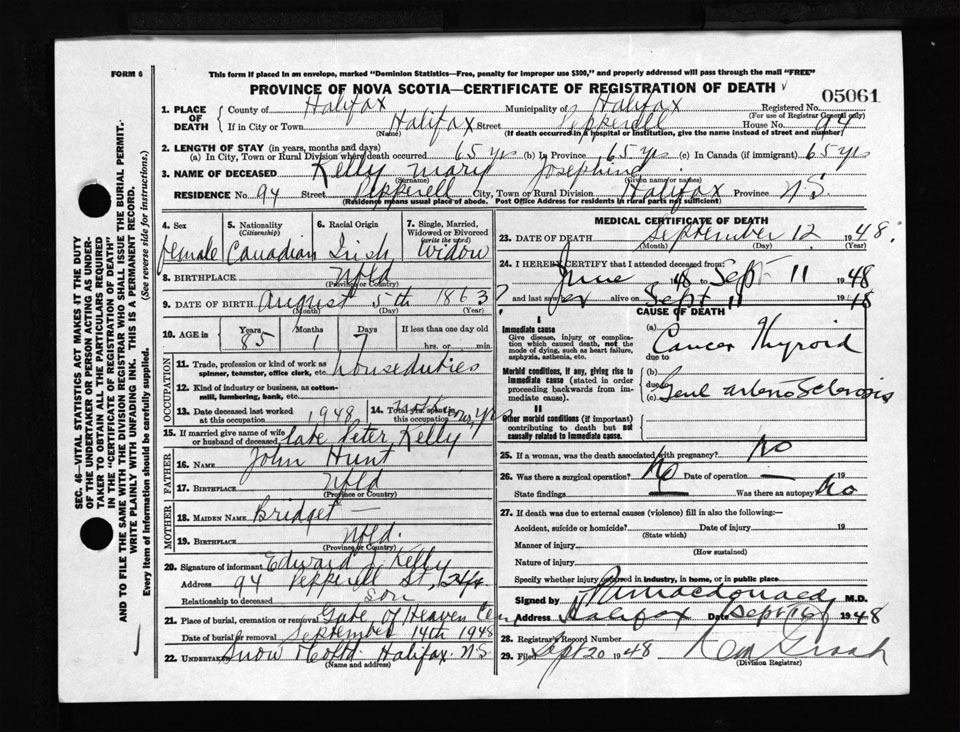 FORM 6
This form if placed in an envelope, marked "Dominion Statistics—Free, penalty for improper use $300," and properly addressed will pass through the mail "FREE"
PROVINCE OF NOVA SCOTIA—CERTIFICATE OF REGISTRATION OF DEATH
05061
1. PLACE OF DEATH
County of Halifax Municipality of Halifax Registered No.
(For use of Registrar General only)
If in City or Town Halifax Street Pepperell House No. 94
(Name) (If death occurred in a hospital or institution, give the name instead of street and number)
2. LENGTH OF STAY (in years, months and days)
(a) In City, Town or Rural Division where death occurred 65 yrs (b) In Province 65 yrs (c) In Canada (if immigrant) 65 yrs
3. NAME OF DECEASED Kelly Mary Josephine
(Surname) (Given name or names)
RESIDENCE No. 94 Street Pepperell City, Town or Rural Division Halifax Province N.S.
(Residence means usual place of abode. Post Office Address for residents in rural parts not sufficient)
4. Sex female
5. Nationality (Citizenship) Canadian
6. Racial Origin Irish
7. Single, Married, Widowed or Divorced (write the word) Widow
8. BIRTHPLACE Nfld
(Province or Country)
9. DATE OF BIRTH August 5th 1863
(Month) (Day) (Year)
10. AGE in Years 85 Months 1 Days 7 If less than one day old
hrs. or min.
OCCUPATION
11. Trade, profession or kind of work as spinner, teamster, office clerk, etc. houseduties
12. Kind of industry or business, as cotton-mill, lumbering, bank, etc.
13. Date deceased last worked at this occupation 1948
14. Total yrs. spent in this occupation yrs
15. If married give name of wife or husband of deceased late Peter Kelly
FATHER
16. NAME John Hunt
17. BIRTHPLACE Nfld
(Province or Country)
MOTHER
18. MAIDEN NAME Bridget —
19. BIRTHPLACE Nfld.
(Province or Country)
20. Signature of informant Edward J. Kelly
Address 94 Pepperell St,
Relationship to deceased son
21. Place of burial, cremation or removal Gate of Heaven Cem
Date of burial or removal September 14th 1948
22. Undertaker Snow & Co Ltd. Halifax. N.S
(Name and address)
MEDICAL CERTIFICATE OF DEATH
23. DATE OF DEATH September 12 1948.
(Month) (Day) (Year)
24. I HEREBY CERTIFY that I attended deceased from:
June 48 to Sept 11 1948
and last saw her alive on Sept 11 1948
CAUSE OF DEATH
I
Immediate cause
Give disease, injury or complication which caused death, not the mode of dying, such as heart failure, asphyxia, asthenia, etc.
(a) Cancer Thyroid
due to
Morbid conditions, if any, giving rise to immediate cause (stated in order proceeding backwards from immediate cause).
(b)
due to
(c) Genl arterio Sclerosis
II
Other morbid conditions (if important) contributing to death but not causally related to immediate cause.
25. If a woman, was the death associated with pregnancy? No
26. Was there a surgical operation? No Date of operation — 19
State findings — Was there an autopsy No
27. If death was due to external causes (violence) fill in also the following:—
Accident, suicide or homicide? Date of injury 19
(State which)
Manner of injury
(How sustained)
Nature of injury
Specify whether injury occurred in industry, in home, or in public place
Signed by Macdonald M.D.
Address Halifax Date Sept 16 1948
28. Registrar's Record Number
29. Filed Sept 20 1948
(Division Registrar)
SEC. 46—VITAL STATISTICS ACT MAKES IT THE DUTY
OF THE UNDERTAKER OR PERSON ACTING AS UNDER-
TAKER TO OBTAIN ALL THE PARTICULARS REQUIRED
IN THE "CERTIFICATE OF REGISTRATION OF DEATH"
AND TO FILE THE SAME WITH THE DIVISION REGISTRAR WHO SHALL ISSUE THE BURIAL PERMIT.
WRITE PLAINLY WITH UNFADING INK. THIS IS A PERMANENT RECORD.
Every item of information should be carefully supplied. (See reverse side for instructions.)